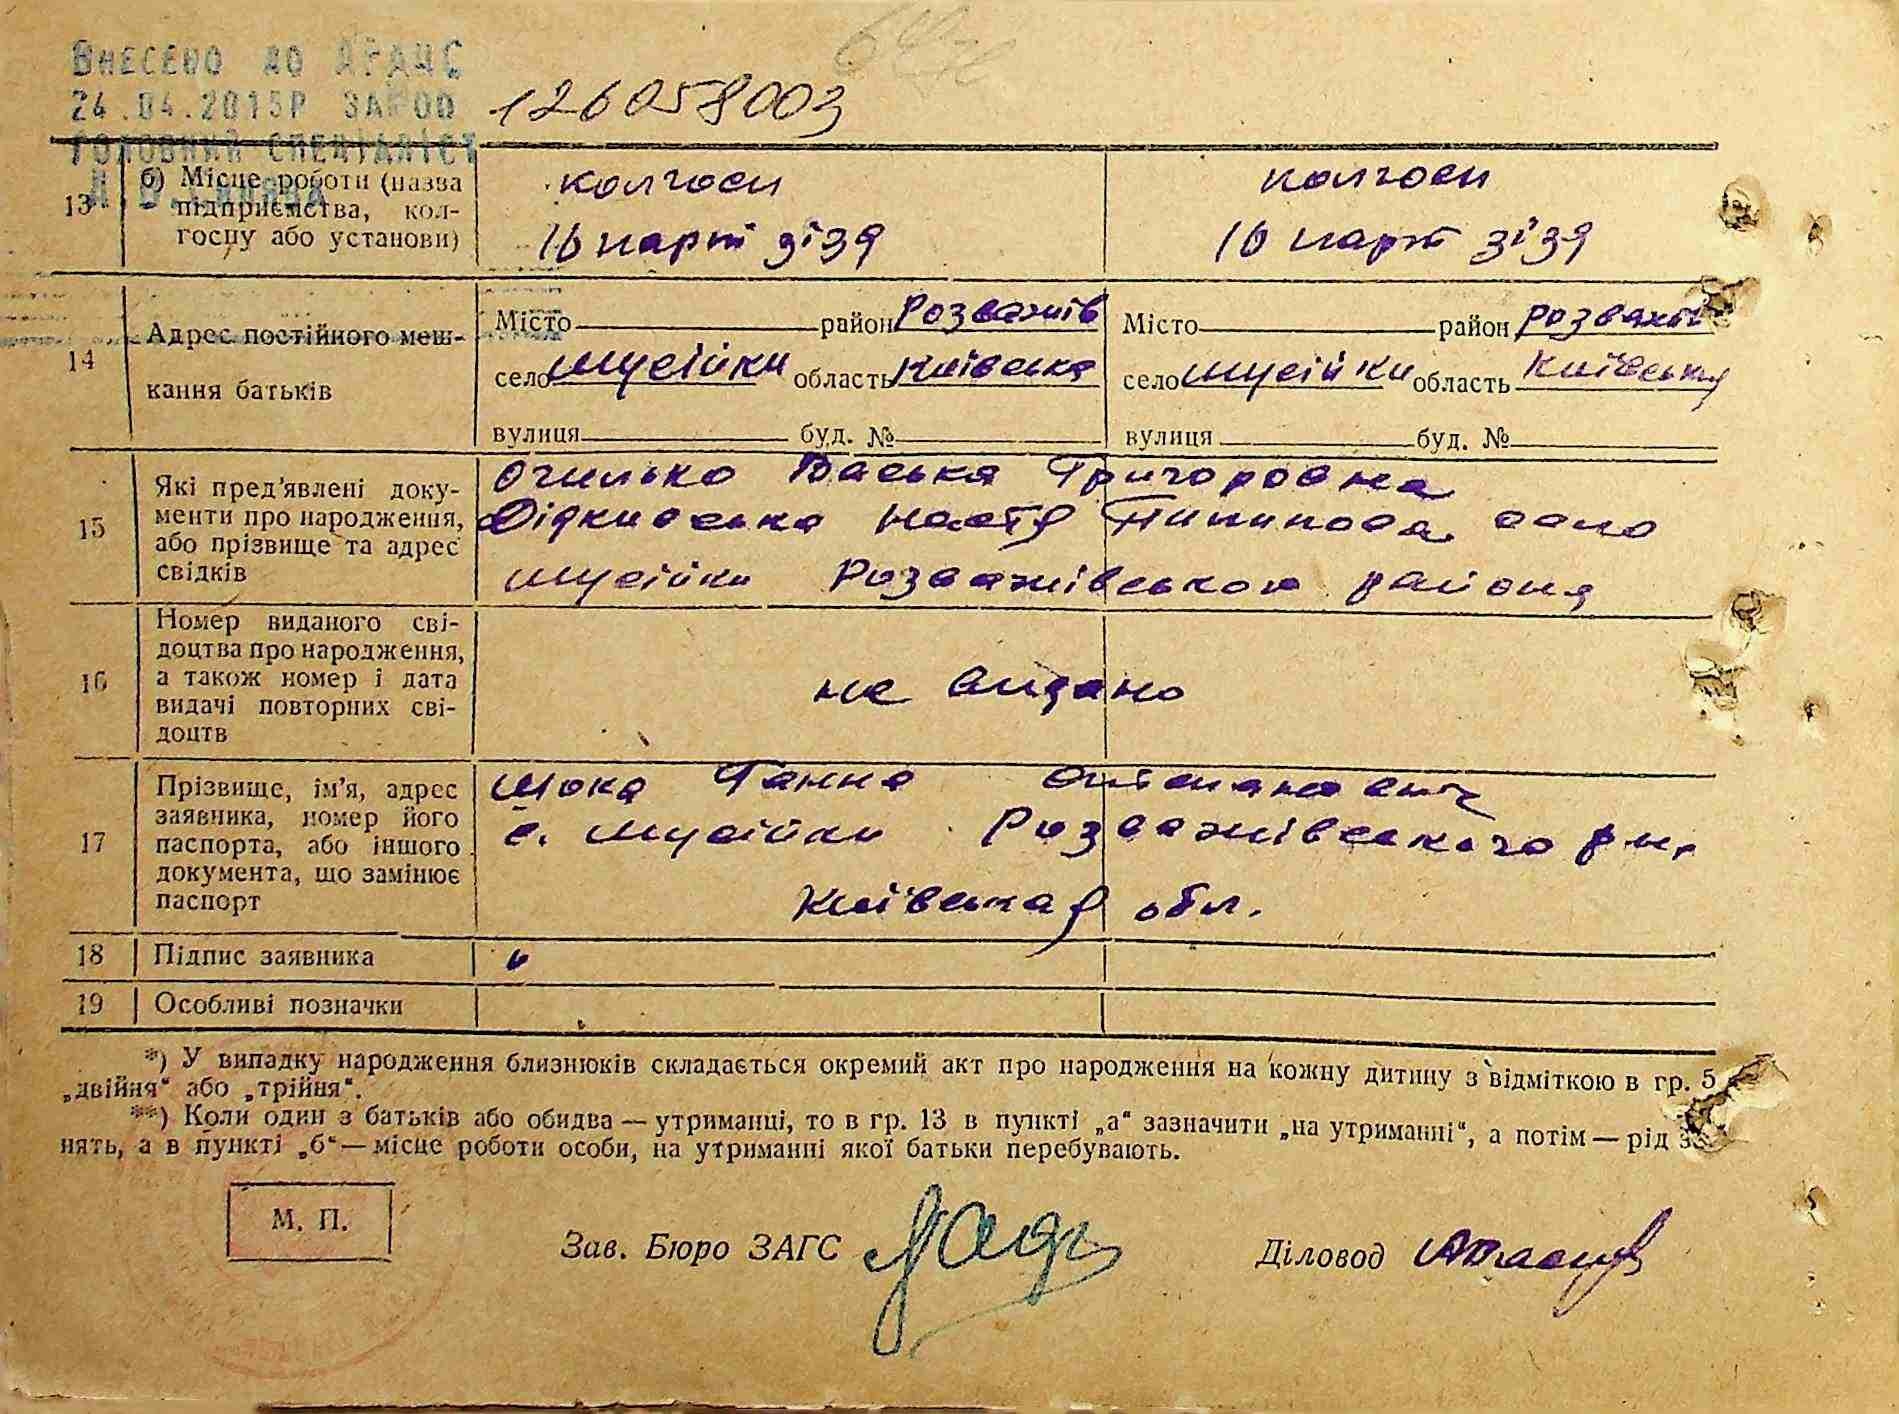 ВНЕСЕНО ДО ДРАЦС
24.04.2015Р
ГОЛОВНИЙ СПЕЦІАЛІСТ
126058003
13 б) Місце роботи (назва підприємства, колгоспу або установи)
колгосп
16 парт зізд
колгосп
16 парт зізд
14 Адрес постійного мешкання батьків
Місто район Розважів
село Мусійки область Київська
вулиця буд. №
Місто район Розважів
село Мусійки область Київська
вулиця буд. №
15 Які пред'явлені документи про народження, або прізвище та адрес свідків
Васька Григоровна
село
Мусійки Розважівського района
16 Номер виданого свідоцтва про народження, а також номер і дата видачі повторних свідоцтв
не видано
17 Прізвище, ім'я, адрес заявника, номер його паспорта, або іншого документа, що замінює паспорт
Ганна
с. Мусійки Розважівського р-н.
Київська обл.
18 Підпис заявника
19 Особливі позначки
*) У випадку народження близнюків складається окремий акт про народження на кожну дитину з відміткою в гр. 5
„двійня“ або „трійня“.
**) Коли один з батьків або обидва — утриманці, то в гр. 13 в пункті „а“ зазначити „на утриманні“, а потім — рід за
нять, а в пункті „б“ — місце роботи особи, на утриманні якої батьки перебувають.
М. П.
Зав. Бюро ЗАГС
Діловод